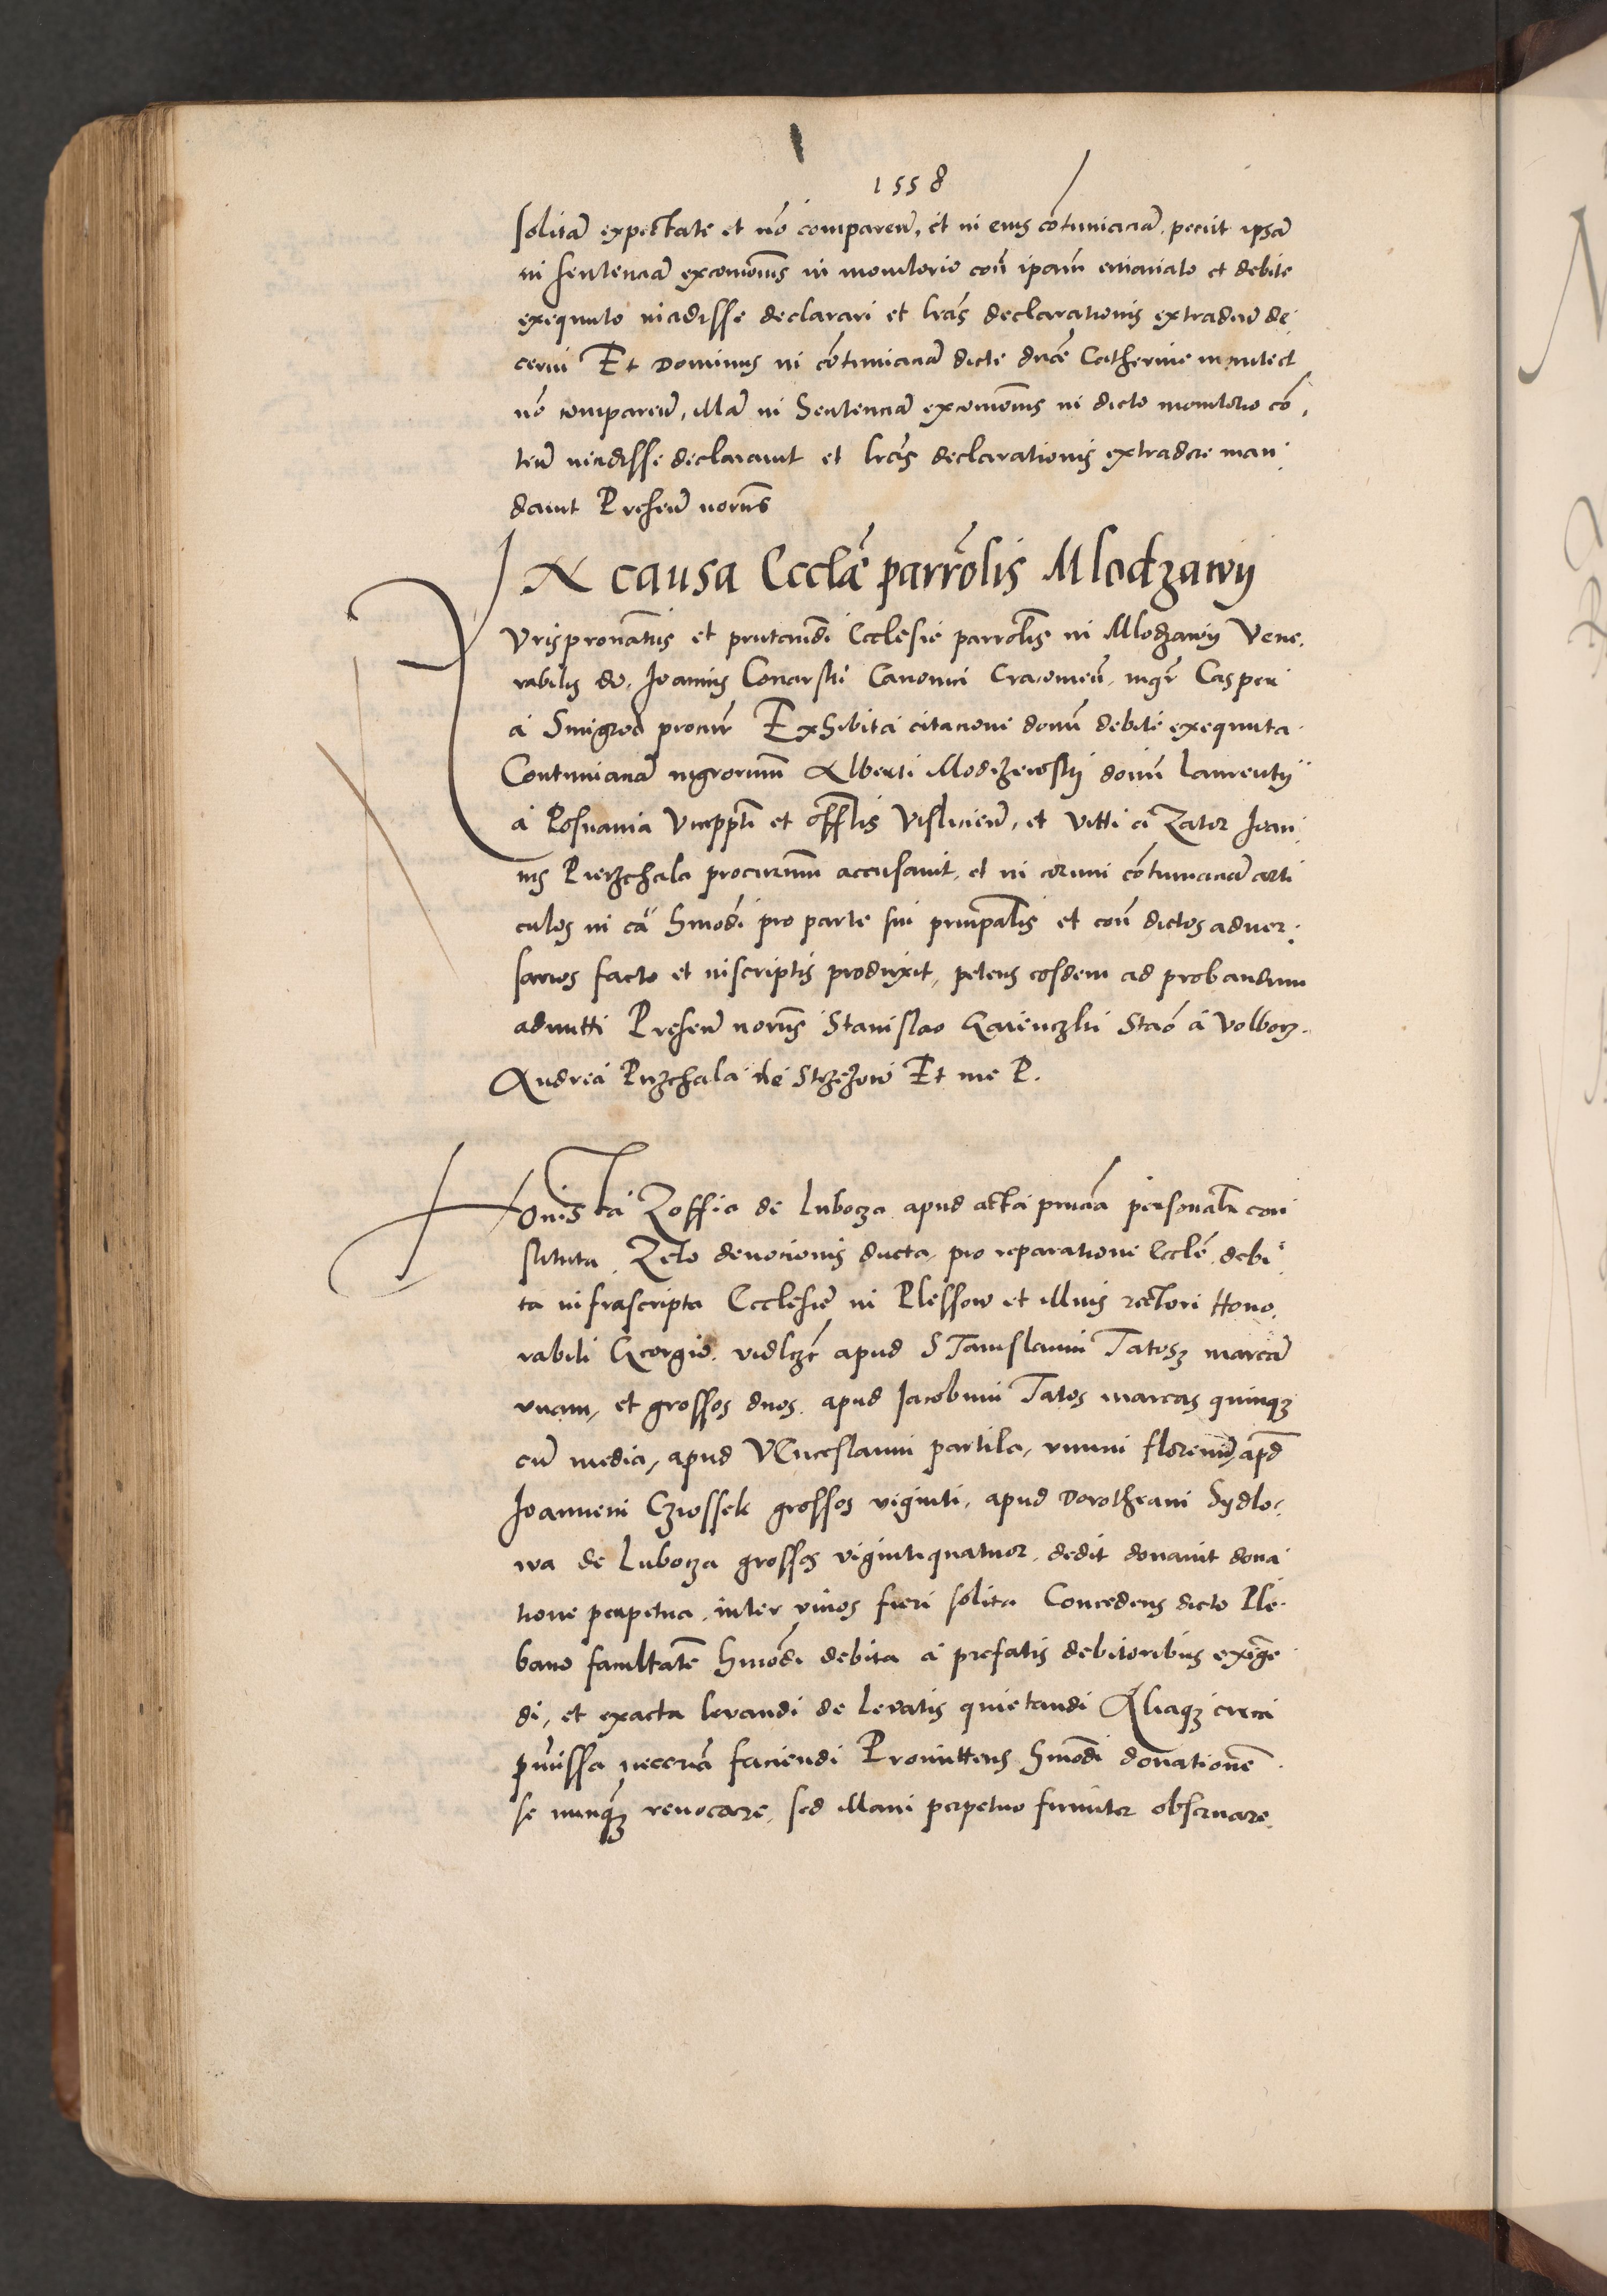 1558
solitā expectate et nō comparen̄, et in eius cōtumaciā, peciit ipsā
in sentenciā excom̄onis in monitorio con̄ ipam̄ emanato et debite
exequuto incidisse declarari et lrās declarationis extradend de
cerni Et Dominus in cōtumaciā dicte dn̄e Catherine
nō comparen̄, illā in Sentenciā excom̄onis in dicto monitorio cō,
ten̄ incidisse declaravit et lrās declarationis extradere man
davit Presen̄ norūs
IN causa Ecclē parrōlis Mlodzawy
Vrispronātus et Ecclesie parrolīs in Mlodzawy Vene,
rabilis dō. Joannis Conarski Canonici Cracouien̄. mgr̄ Casper
a Smigrod procur̄ Exhibita citacione dom̄ debite exequuta
Contumaciā mgrorum Alberti Modrzewsky dom̄ Laurentÿ
a Posnania Viceppti et offlis Vislicien̄, et Vitti a Zator Joan
nis Pierzchala procurum accusavit, et in eorum cōtumaciā arti
culos in cā hmōdi pro parte sui principalis et con̄ dictos adver,
sarios facto et inscriptis produxit, petens eosdem ad probandum
admitti Presen̄ norūs Stanislao Gariczki Staō a Volborz
Andrea Przchala de Strzezow Et me P.
Honesta Zoffia de Luboza apud acta prn̄cia personalr con
stituta Zelo devocionis ducta, pro reparatione Ecclē debi
ta infrascripta Ecclesie in Plessow et illius rectori Hono,
rabili Georgio. vidlczt apud Stanislaum Tatosz marcā
unam, et grossos duos. apud Jacobum Tatos marcas quinqz
cū media, apud Venceslaum partila, unum florenū, apd
Joannem Czrossek grossos viginti, apud Dorotheam Sydlo,
wa de Luboza grossos vigintiquatuor. dedit donavit dona
tione perpetua inter vivos fieri solita Concedens dicto Ple
bano facultatē hmōdi debita a prefatis debitoribus exigē
di, et exacta levandi de levatis quietandi Aliaqz circa
pmissa necerīa faciendi Promittens hmōdi donationē
se nunqz revocare, sed illam perpetuo firmiter observare.